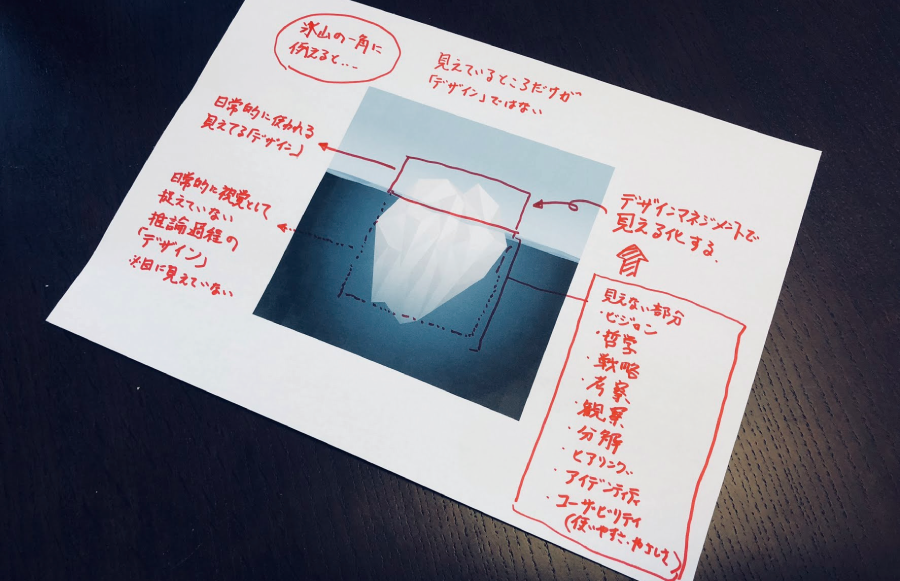 氷山の一角に
例えると...
見えているところだけが
「デザイン」ではない
日常的に使われる
見えてる「デザイン」
日常的に視覚として
捉えていない
推論過程の
「デザイン」
※目に見えていない
デザインマネジメントで
見える化する.
見えない部分
・ビジョン
・哲学
・戦略
・考察
・観察
・分解
・ヒアリング
・アイデンティティ
・ユーザビリティ
(使いやすさ・やさしさ)